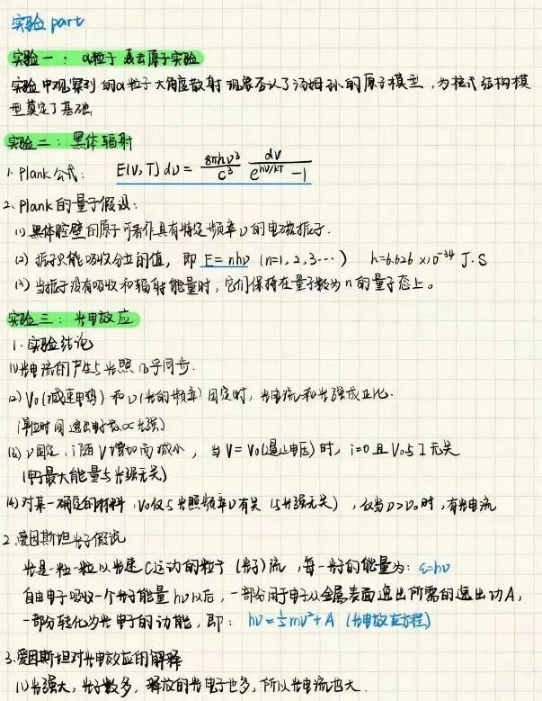 实验 part
实验一：α粒子轰击原子实验
实验中观察到的α粒子大角度散射现象否认了汤姆孙的原子模型，为核式结构模
型奠定了基础
实验二：黑体辐射
1. Plank公式： E(ν,T)dν = 8πhν³/c³ dν/(e^{hν/kT} - 1)
2. Plank的量子假设：
(1) 黑体腔壁的原子可看作具有特定频率ν的电磁振子.
(2) 振子只能吸收分立的值，即 E=nhν (n=1,2,3…) h=6.626×10⁻³⁴ J·S
(3) 当振子没有吸收和辐射能量时，它们保持在量子数为n的量子态上。
实验三：光电效应
1. 实验结论
(1) 光电流的产生与光照几乎同步.
(2) V₀(减速电势) 和 ν(光的频率) 固定时，光电流和光强成正比.
(单位时间逸出电子数∝光强)
(3) ν固定，i随V增加而减小，当V=V₀(遏止电压)时，i=0且V₀与I无关
(电子最大能量与光强无关)
(4) 对某一确定的材料，V₀仅与光照频率ν有关 (与光强无关)，仅当ν>ν₀时，有光电流
2. 爱因斯坦光子假说
光是一粒一粒以光速C运动的粒子(光子)流，每一光子的能量为：ε=hν
自由电子吸收一个光子能量hν以后，一部分用于电子从金属表面逸出所需的逸出功A，
一部分转化为光电子的动能，即：hν=½mv²+A (光电效应方程)
3. 爱因斯坦对光电效应的解释
(1) 光强大，光子数多，释放的光电子也多，所以光电流也大.